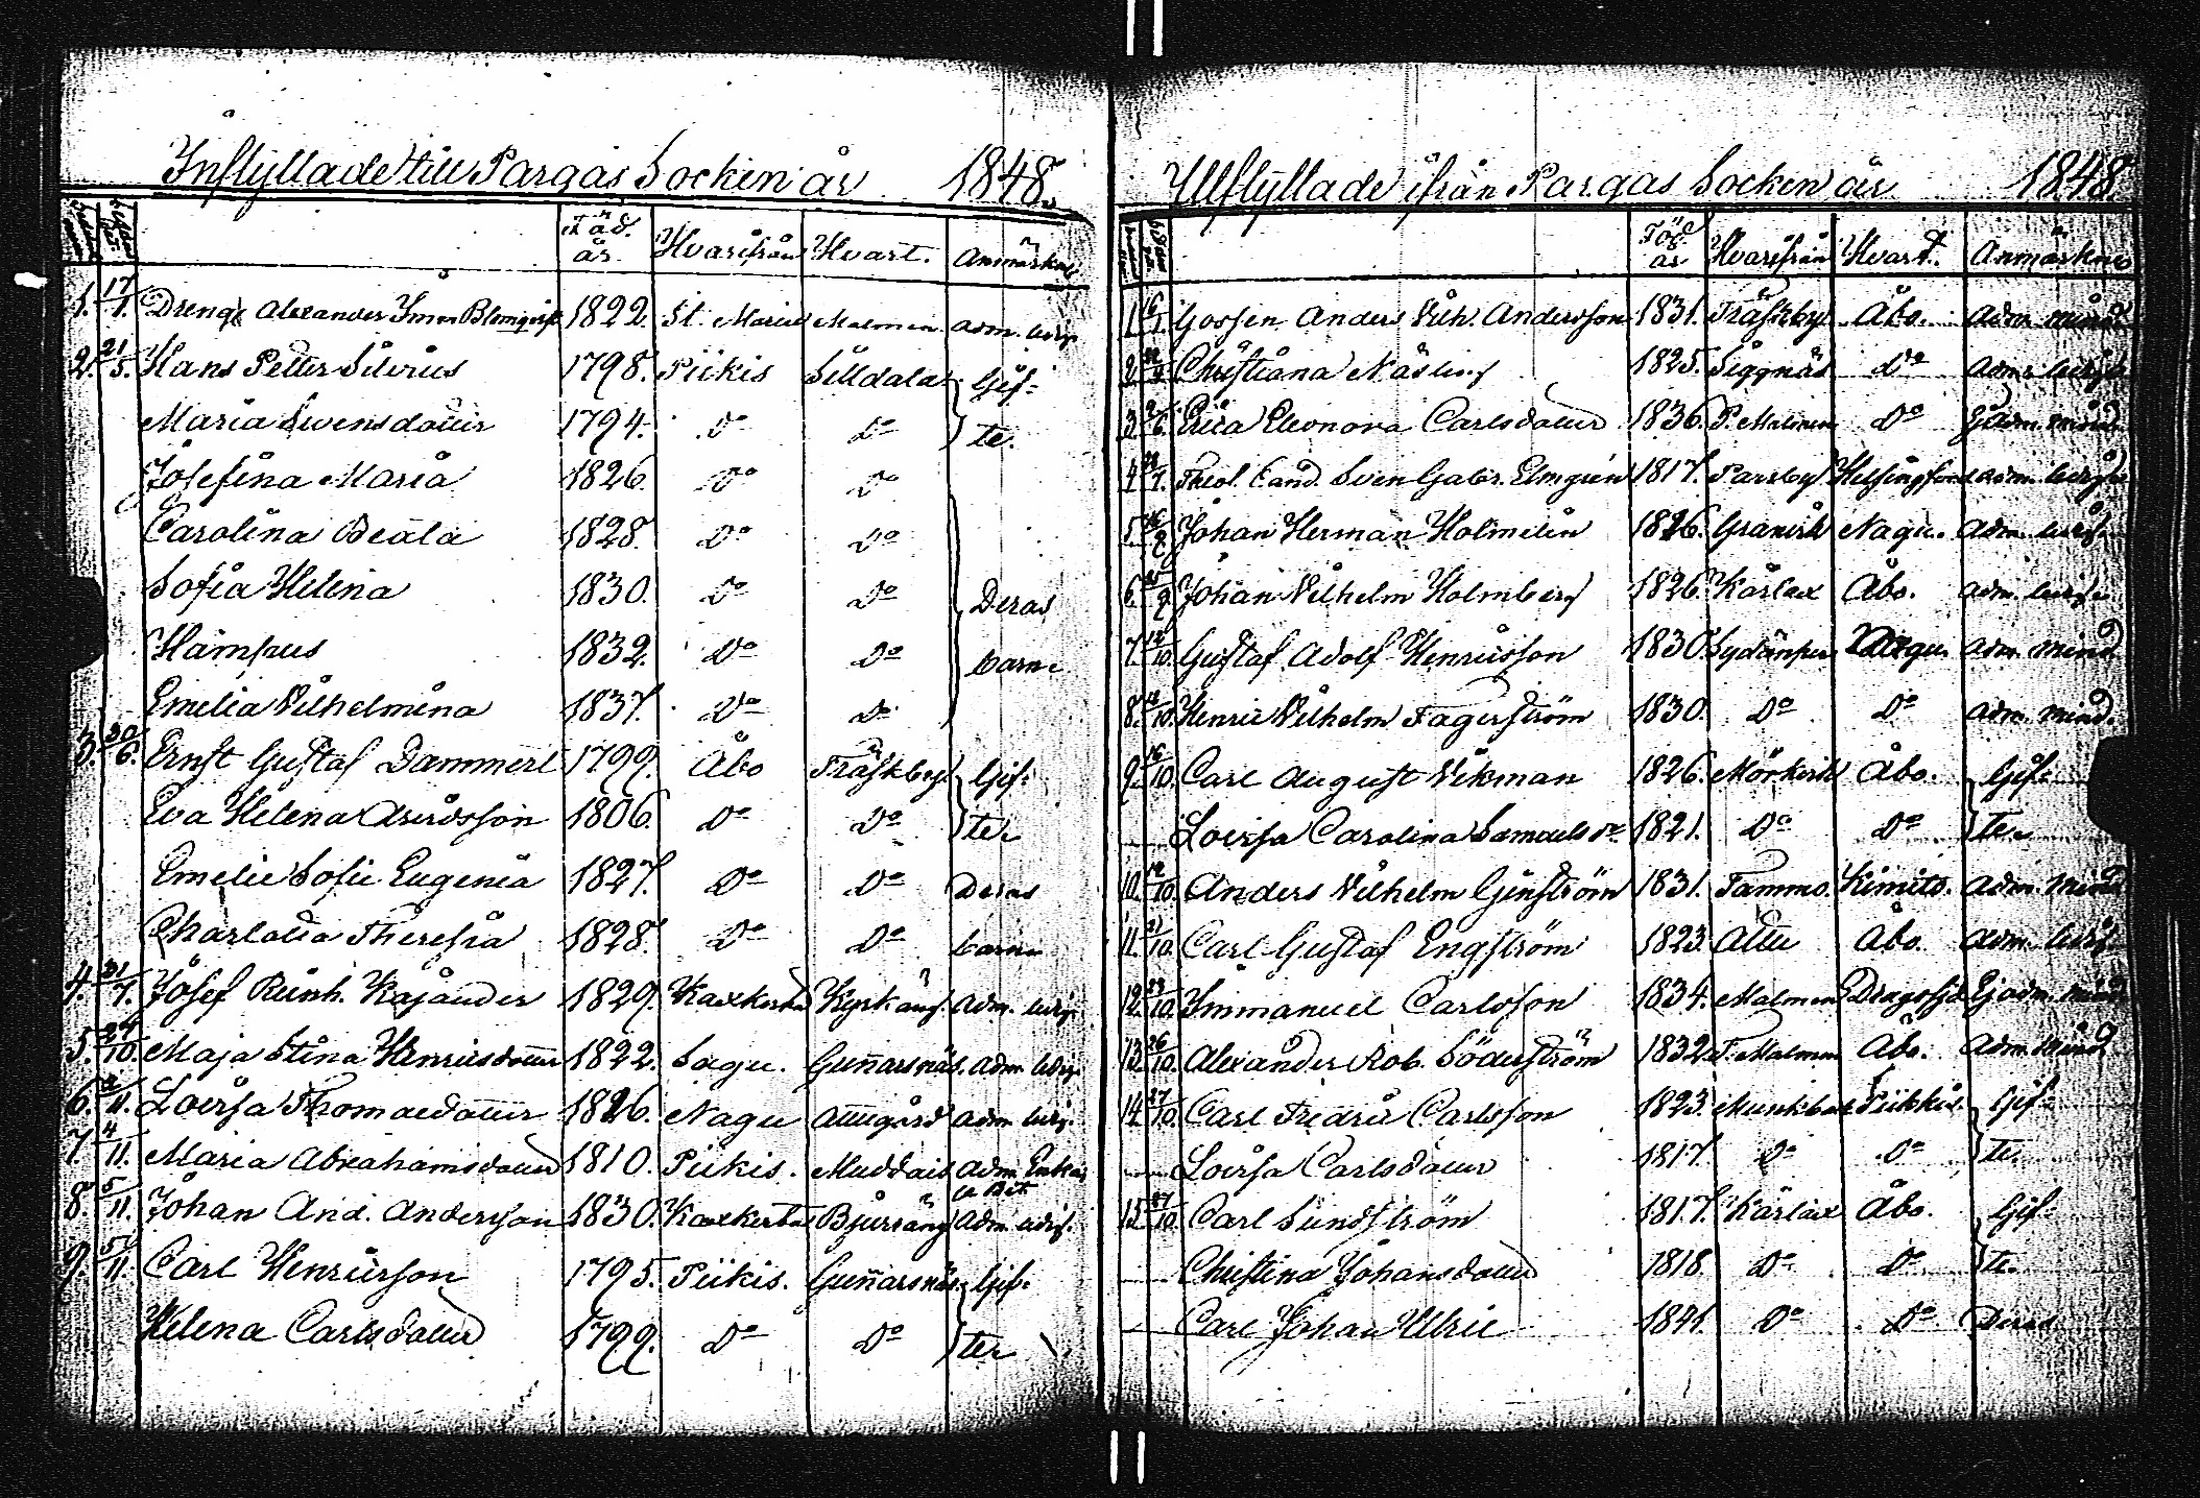 Inflyttade till Pargas Socken år 1848.
Föd. år. Hvarifrån Hvart. Anmärkn.
1. 17/1. Dreng Alexander Iman Blomqvist 1822. St. Marie Malmen adm. ledig
2. 21/5. Hans Petter Silvrus 1798. Piikis Silldala Gif-
Maria Svensdotter 1794. Do Do te.
Josefina Maria 1826. Do Do
Carolina Beata 1828. Do Do
Sofia Helena 1830. Do Do Deras
Hampus 1832. Do Do barn
Emilia Vilhelmina 1837. Do Do
3. 20/6. Ernst Gustaf Dammert 1799. Åbo Träskby Gif-
Eva Helena Arvidsson 1806. Do Do ter
Emelie Sofie Eugenia 1827. Do Do Deras
Charlotta Theresia 1828. Do Do barn
4. 31/7. Josef Reinh. Kajander 1829. Kaxkerta Kyrkäng. adm. ledig.
5. 24/10. Maja Stina Henricsdotter 1822. Sagu. Gunnarsnäs. adm. ledig.
6. 2/11. Lovisa Thomasdotter 1826. Nagu Attugård adm. ledig.
7. 4/11. Maria Abrahamsdotter 1810. Piikis. Muddais adm. Enka
8. 5/11. Johan And. Andersson 1830. Kaxkerta Bjursäng adm.
9. 5/11. Carl Henricsson 1795. Piikis. Gunnarsnäs. Gif-
Helena Carlsdotter 1799. Do Do ter
Utflyttade ifrån Pargas Socken år 1848.
Föd. år Hvarifrån Hvart. Anmärkn.
1. 16/1 Gossen Anders Vilh. Andersson 1831. Träskby Åbo. adm. mind
2. Christiana Näsling 1825. Siggnäs do adm. ledig
3. Erica Eleonora Carlsdotter 1836. P. Malmen Do Ej adm. mind
4. Theol. Cand. Sven Gabr. Elmgrén 1817. Parsby Helsingfors adm. ledig
5. 16/9 Johan Herman Holmelin 1826. Granvik Nagu. adm. ledig
6. 25/9 Johan Vilhelm Holmberg 1826. Kärlax Åbo. adm. ledig
7. 12/10. Gustaf Adolf Henricsson 1830. Sydänper Nagu. adm. mind
8. 12/10. Henric Vilhelm Fagerström 1830. Do Do adm. mind.
9. 16/10. Carl August Vikman 1826. Mörkvik Åbo. Gif-
Lovisa Carolina Samuelsdr 1821. Do Do te.
10. 19/10. Anders Vilhelm Genström 1831. Tammo. Kimito. adm. mind
11. 21/10. Carl Gustaf Engström 1823. Attu Åbo. adm. ledig
12. 23/10. Immanuel Carlsson 1834. Malmen Dragsfjd Ej adm. mind
13. 26/10. Alexander Rob. Söderström 1832. P. Malmen Åbo. adm. mind
14. 27/10. Carl Fridric Carlsson 1823. Munkbac Piikkis. Gif-
Lovisa Carlsdotter 1817. Do Do te.
15. 27/10. Carl Sundström 1817. Kärlax Åbo. Gif-
Christina Johansdotter 1818. Do Do te.
Carl Johan Ulric 1841. Do Do Deras